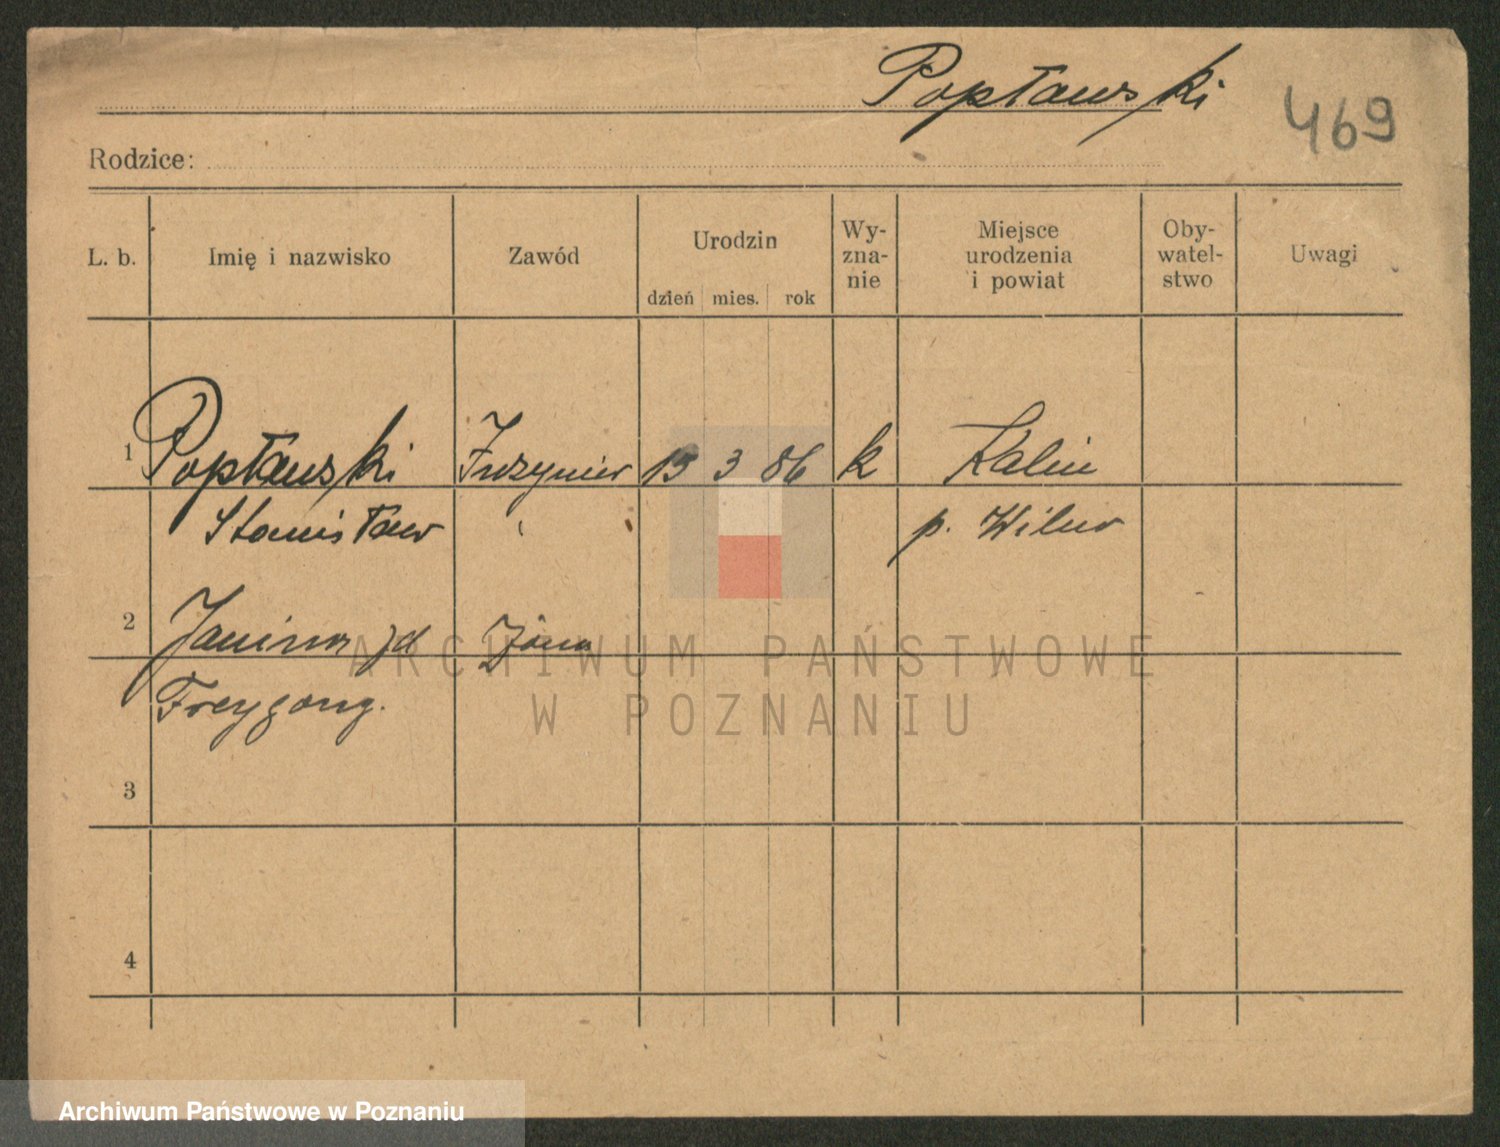 Popławski
469
Rodzice:
L. b. Imię i nazwisko Zawód Urodzin dzień mies. rok Wy-zna-nie Miejsce urodzenia i powiat Oby-watel-stwo Uwagi
1 Popławski Inżynier 15 3 86 k Kalin
Stanisław p. Wilno
2 Janina żona
Freygang.
3
4
ARCHIWUM PAŃSTWOWE
W POZNANIU
Archiwum Państwowe w Poznaniu